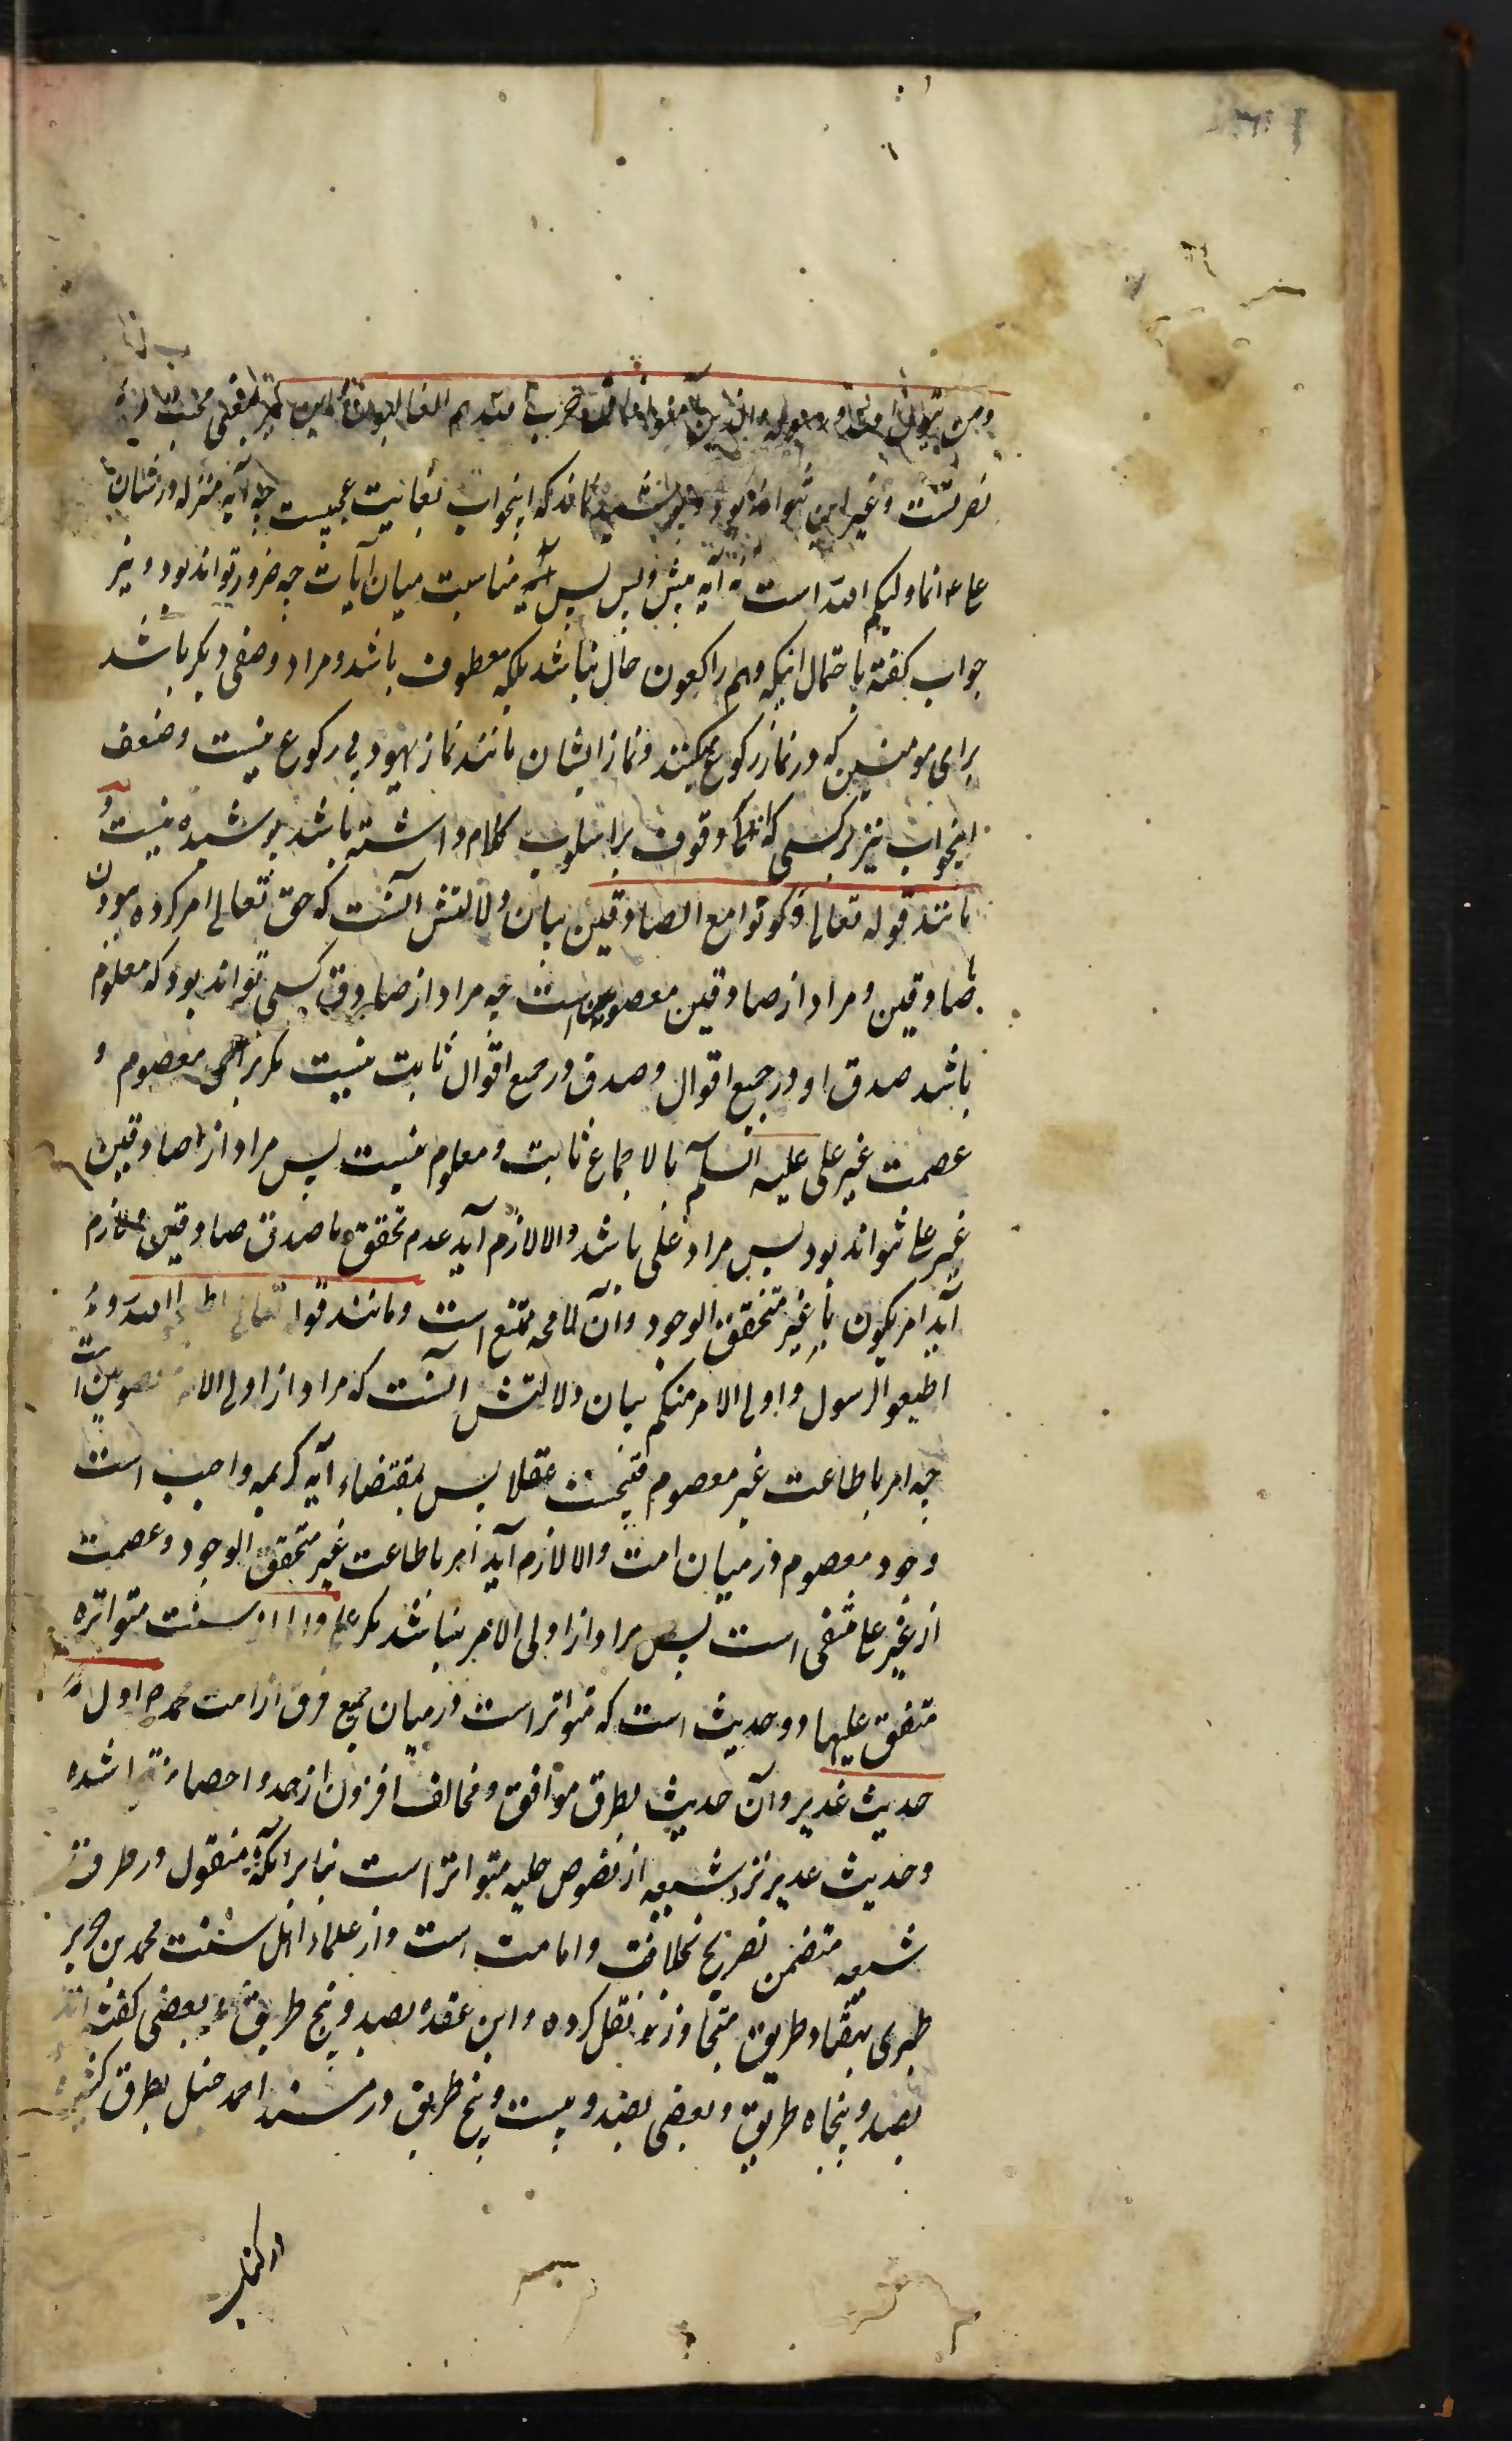 ومن یتول الله ورسوله والذین آمنوا فان حزب الله هم الغالبون که این نیز بمعنی محبت و
نصرتست وغیر این نتواند بود و پوشیده نماند که اینجواب بغایت عجیبست چه آیه منزله در شان
علی ع انما ولیکم الله است نه آیه پیش و پس پس مناسبت میان آیات چه ضرور تواند بود و نیز
جواب گفته باحتمال اینکه وهم راکعون حال نباشد بلکه معطوف باشد و مراد وصفی دیگر باشد
برای مومنین که در نماز رکوع میکنند و نماز ایشان مانند نماز یهود بی رکوع نیست وضعف
اینجواب نیز بر کسی که اندک وقوف بر اسلوب کلام داشته باشد پوشیده نیست و
مانند قوله تعالی وکونوا مع الصادقین بیان دلالتش آنست که حق تعالی امر کرده بودن
با صادقین و مراد از صادقین معصومین است چه مراد از صادق کسی تواند بود که معلوم
باشد صدق او در جمیع اقوال و صدق در جمیع اقوال ثابت نیست مگر برای معصوم و
عصمت غیر علی علیه السلم بالاجماع ثابت و معلوم نیست پس مراد از صادقین
غیر علی نتواند بود پس مراد علی باشد والا لازم آید عدم تحقق ما صدق صادقین و لازم
آید امر بکون با غیر متحقق الوجود وآن لامحه ممتنع است و مانند قوله تعالی اطیعوا الله و
اطیعوا الرسول واولی الامر منکم بیان دلالتش آنست که مراد از اولی الامر معصومین است
چه امر باطاعت غیر معصوم قبیحست عقلا پس بمقتضاء آیه کریمه واجب است
وجود معصوم در میان امت والا لازم آید امر باطاعت غیر متحقق الوجود وعصمت
از غیر علی منفی است پس مراد از اولی الامر نباشد مگر علی واما از سنت متواتره
متفق علیها دو حدیث است که متواتر است در میان جمیع فرق از امت محمد ص اول
حدیث غدیر وآن حدیث بطرق موافق و مخالف افزون از حد و احصا شده
وحدیث غدیر نزد شیعه از نصوص جلیه متواتر است بنابر آنکه منقول در طرق
شیعه متضمن تصریح بخلافت و امامت است و از علماء اهل سنت محمد بن جریر
طبری بهفتاد طریق متجاوز نقل کرده و ابن عقده بصد و پنج طریق و بعضی گفته اند
بصد و پنجاه طریق و بعضی بصد و بیست و پنج طریق و در مسند احمد حنبل بطرق کثیره